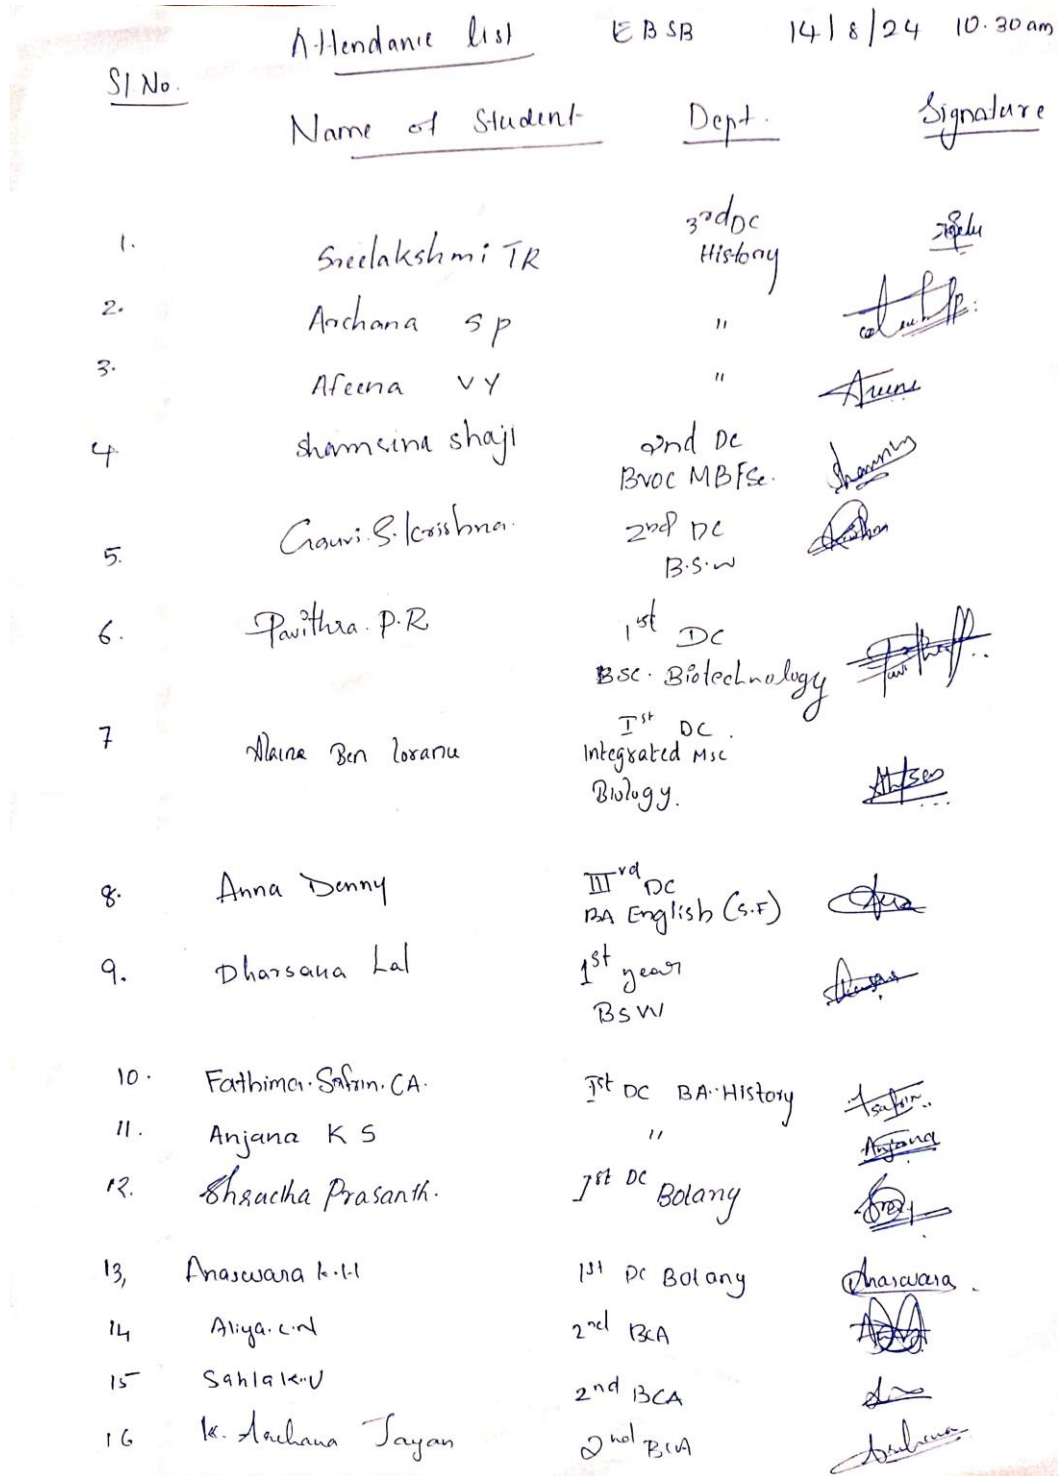 Attendance list EBSB 14/8/24 10.30am
Sl No.
Name of Student Dept. Signature
1. Sreelakshmi TR 3rd DC
History
2. Archana S P "
3. Afeena V Y " Areena
4 Shamsina Shaji 2nd DC
Bvoc MBFSc.
5. Gouri.S.Krishna. 2nd DC
B.S.W
6. Pavithra. P.R 1st DC
BSc. Biotechnology
7 Ben 1st DC.
Integrated Msc
Biology.
8. Anna Denny IIIrd DC
BA English (S.F)
9. Dharsana Lal 1st year
BSW
10. Fathima.Safrin.CA. Ist DC BA.History Fsafrin..
11. Anjana K S " Anjana
12. Shradha Prasanth. 1st DC Botany
13, Anaswara K.H 1st DC Botany Anaswara.
14 Aliya.C.N 2nd BCA
15 Sahla K.U 2nd BCA
16 K. Archana Jayan 2nd BCA Archana